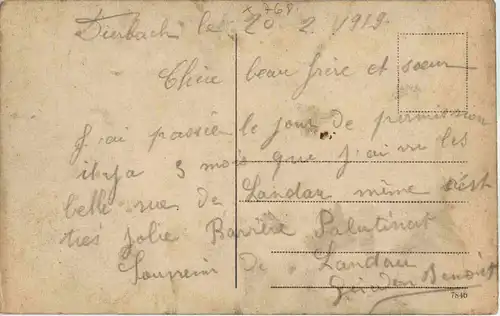 Dierbach le 20.2.1919
Chère beau frère et sœur
J'ai passée le jour de permission
il y a 3 mois que j'ai vu les
belle rue de Landau même c'est
très jolie Barrière Palatinat
Souvenir de Landau
Benoist
7846